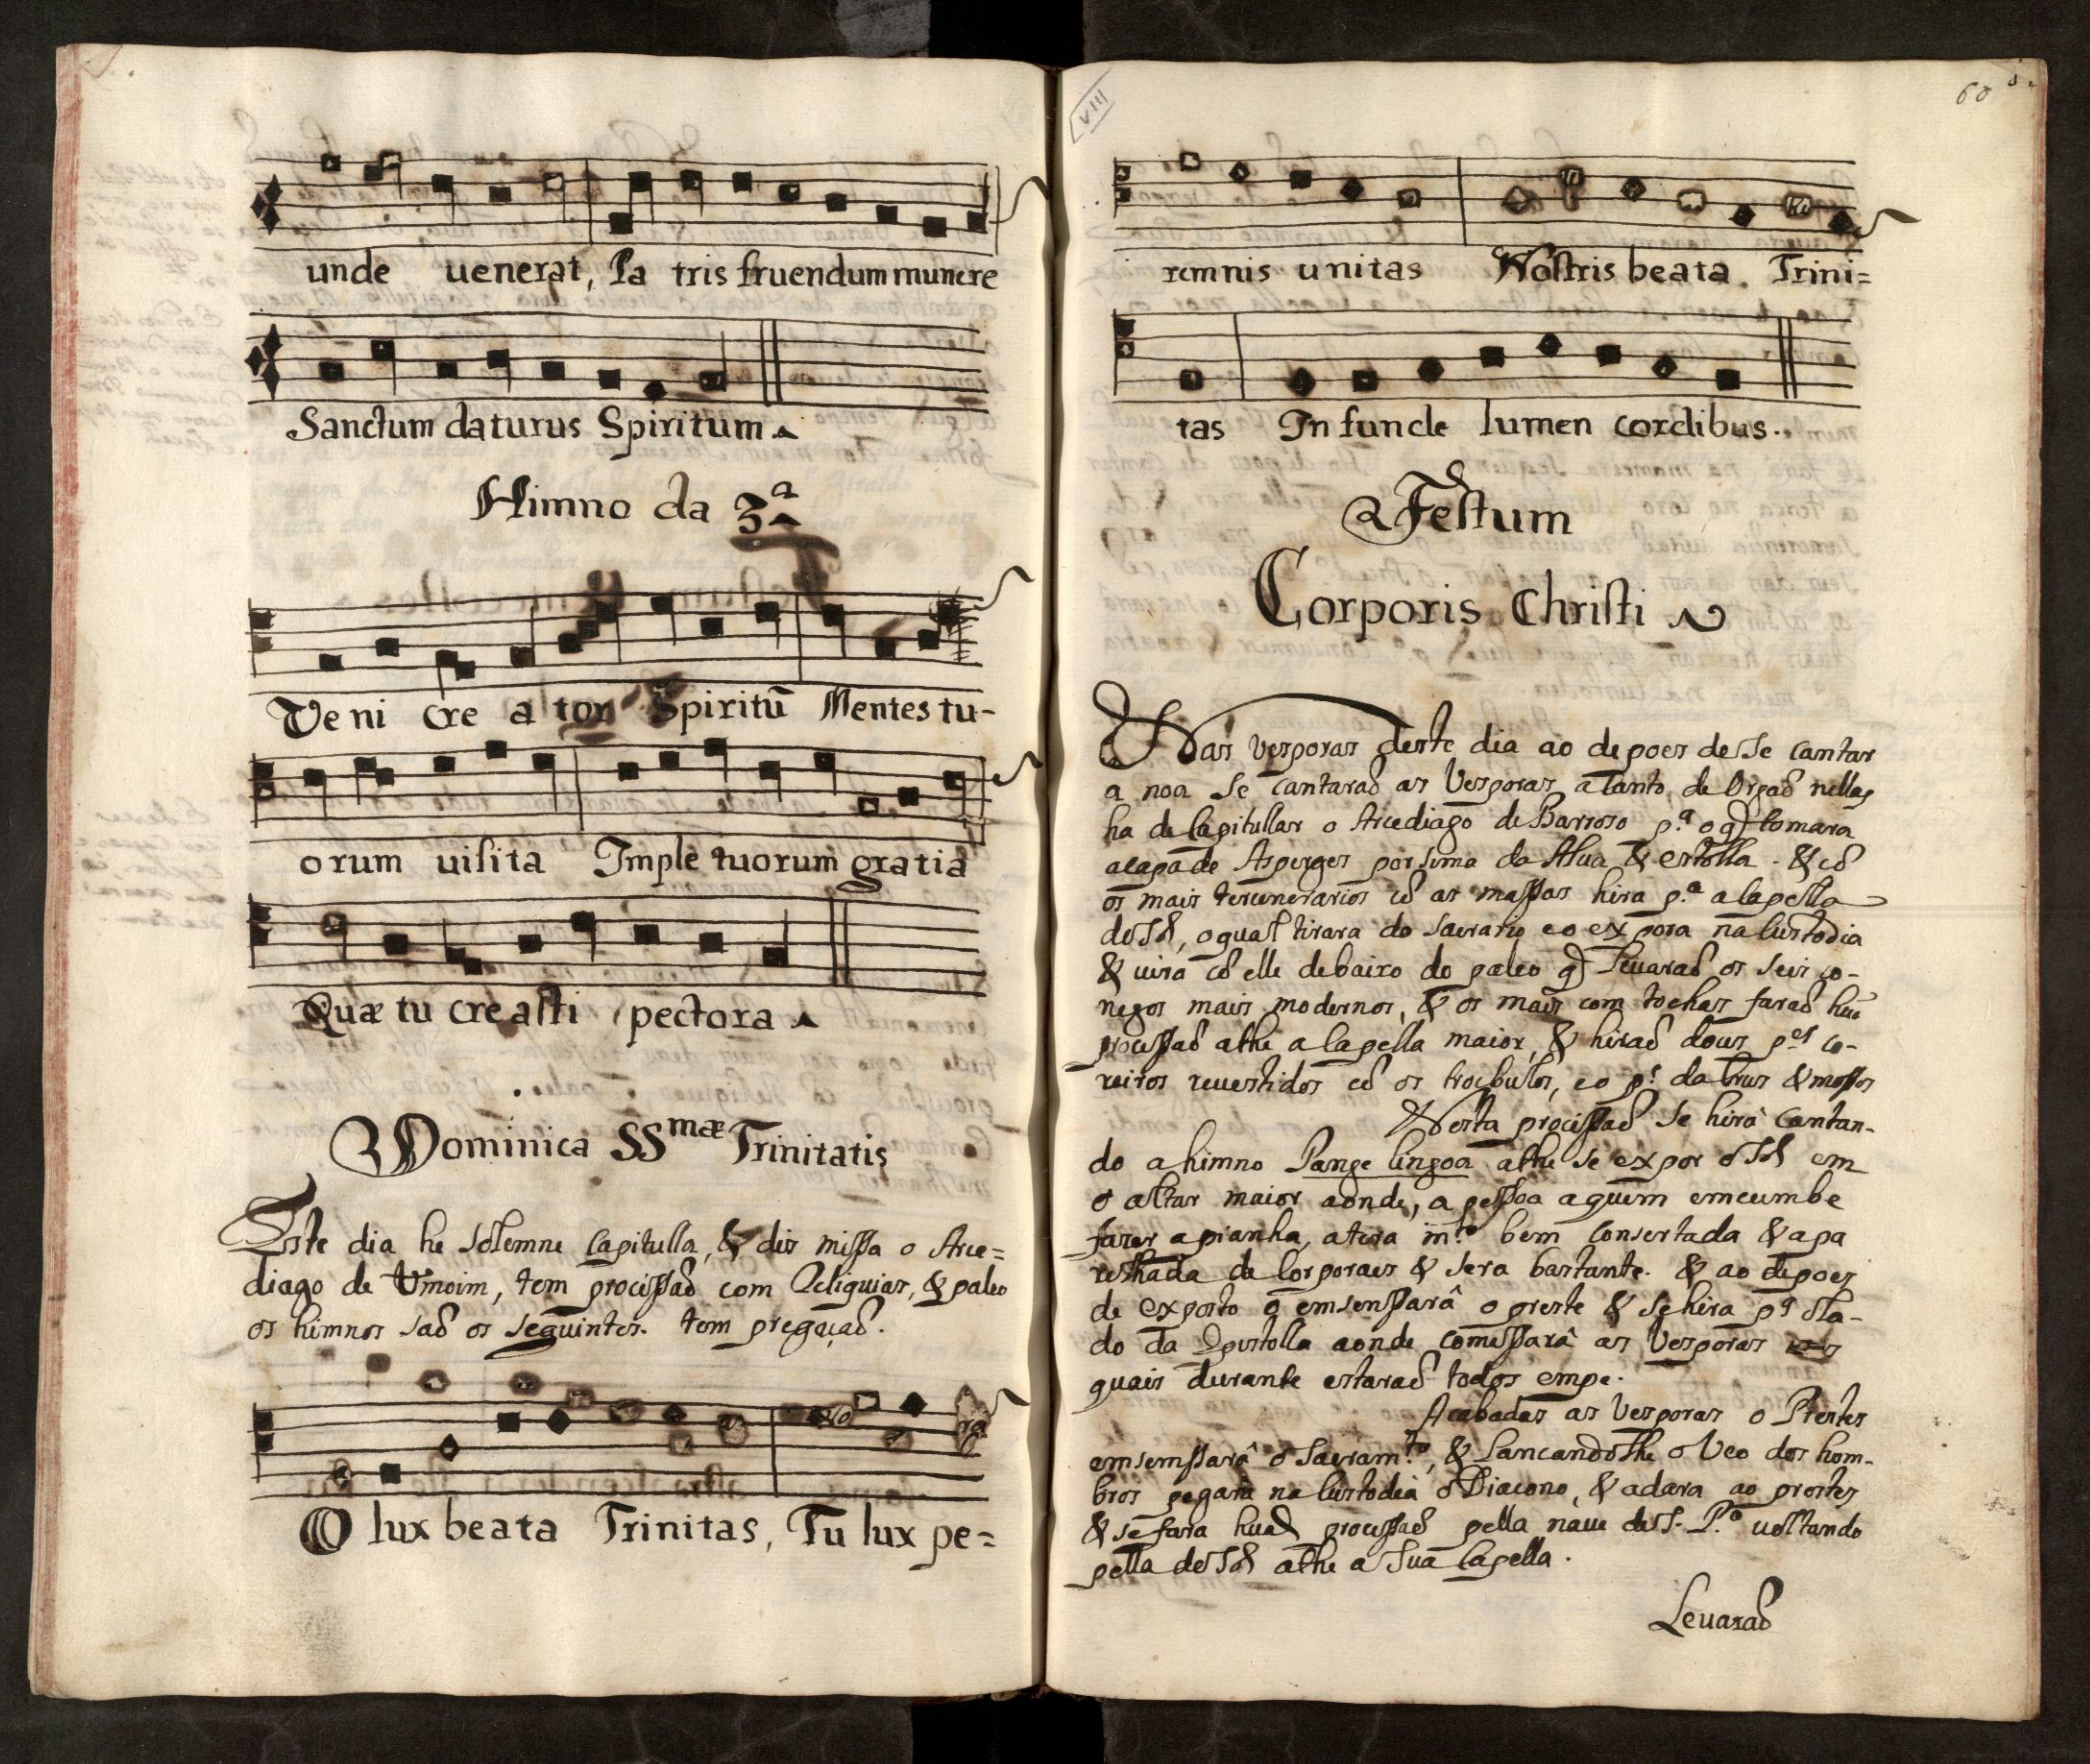 unde uenerat, Pa tris fruendum munere
Sanctum daturus Spiritum
Himno da 3.ª
Ve ni cre a tor Spiritũ Mentes tu-
orum uisita Imple tuorum gratia
Quæ tu creasti pectora
Dominica SSmæ Trinitatis
Este dia he solemne Capitulla, & dis missa o Arce=
diago de Vmoim, tem procissaõ com Reliquias, & paleo
os himnos saõ os seguintes. tem pregaçaõ.
O lux beata Trinitas, Tu lux pe=
VIII
60
remnis unitas Nostris beata Trini=
tas Infunde lumen cordibus.
Festum
Corporis Christi
Nas vesporas deste dia ao depoes desse cantar
a noa se cantaraõ as Vesporas a Canto de Orgaõ nellas
ha de Capitullar o Arcediago de Barroso p.ª o q̃ tomara
a capa de Asperges por sima da Alua & estolla. & cõ
os mais tercenerarios cõ as massas hira p.ª a Capella
do Sõr, o qual tirara do sacrario e o expora na Custodia
& uirá cõ elle debaixo do paleo q̃ leuaraõ os seis co-
negos mais modernos, & os mais com tochas faraõ hũa
procissaõ athe a Capella maior, & hiraõ dous p.es co-
reiros reuestidos cõ os
da Crus & mossos
Nesta procissaõ se hirá cantan-
do a himno Pange lingoa athe se expor o Sõr em
o altar maior aonde, a pessoa a quem emcumbe
fazer a pianha, a tera m.to bem consertada & apa
relhada de Corporaes & sera bastante. & ao depoes
de exposto o emsenssarâ o preste & se hira p.ª o la-
do da Epistolla aonde comessarâ as Vesporas as
quais durante estaraõ todos empe.
Acabadas as Vesporas o Prestes
emsemssarâ o Sacram.to, & Lancandolhe o Veo dos hom-
bros pegarâ na Custodia o Diacono, & a dara ao prestes
& se fara huã procissaõ pella naue de S. P.º uoltando
pella do Sõr athe a sua Capella.
Leuaraõ